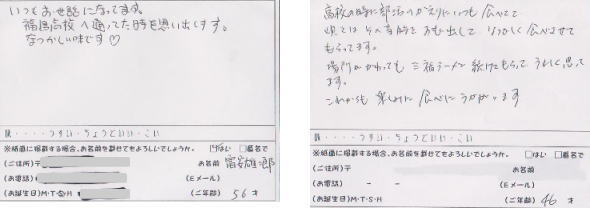 いつもお世話になってます。
福島高校へ通ってた時を思い出します。
なつかしい味です♡
味・・・・うすい・ちょうどいい・こい
※紙面に掲載する場合、お名前を載せてもよろしいでしょうか。 はい □匿名で
(ご住所)〒 お名前
(お電話) (Eメール)
(お誕生日)M・T・S・H (ご年齢) 56 才
高校の時に部活のがえりにいつも食べてて
頃では その当時を おもい出して なつかしく 食べさせて
もらってます。
場所がかわっても 三福ラーメン 続けてもらって うれしく思って
ます。
これからも 楽しみに 食べにうかがいます
味・・・・うすい・ちょうどいい・こい
※紙面に掲載する場合、お名前を載せてもよろしいでしょうか。 □はい □匿名で
(ご住所)〒 お名前
(お電話) - - (Eメール)
(お誕生日)M・T・S・H (ご年齢) 46 才